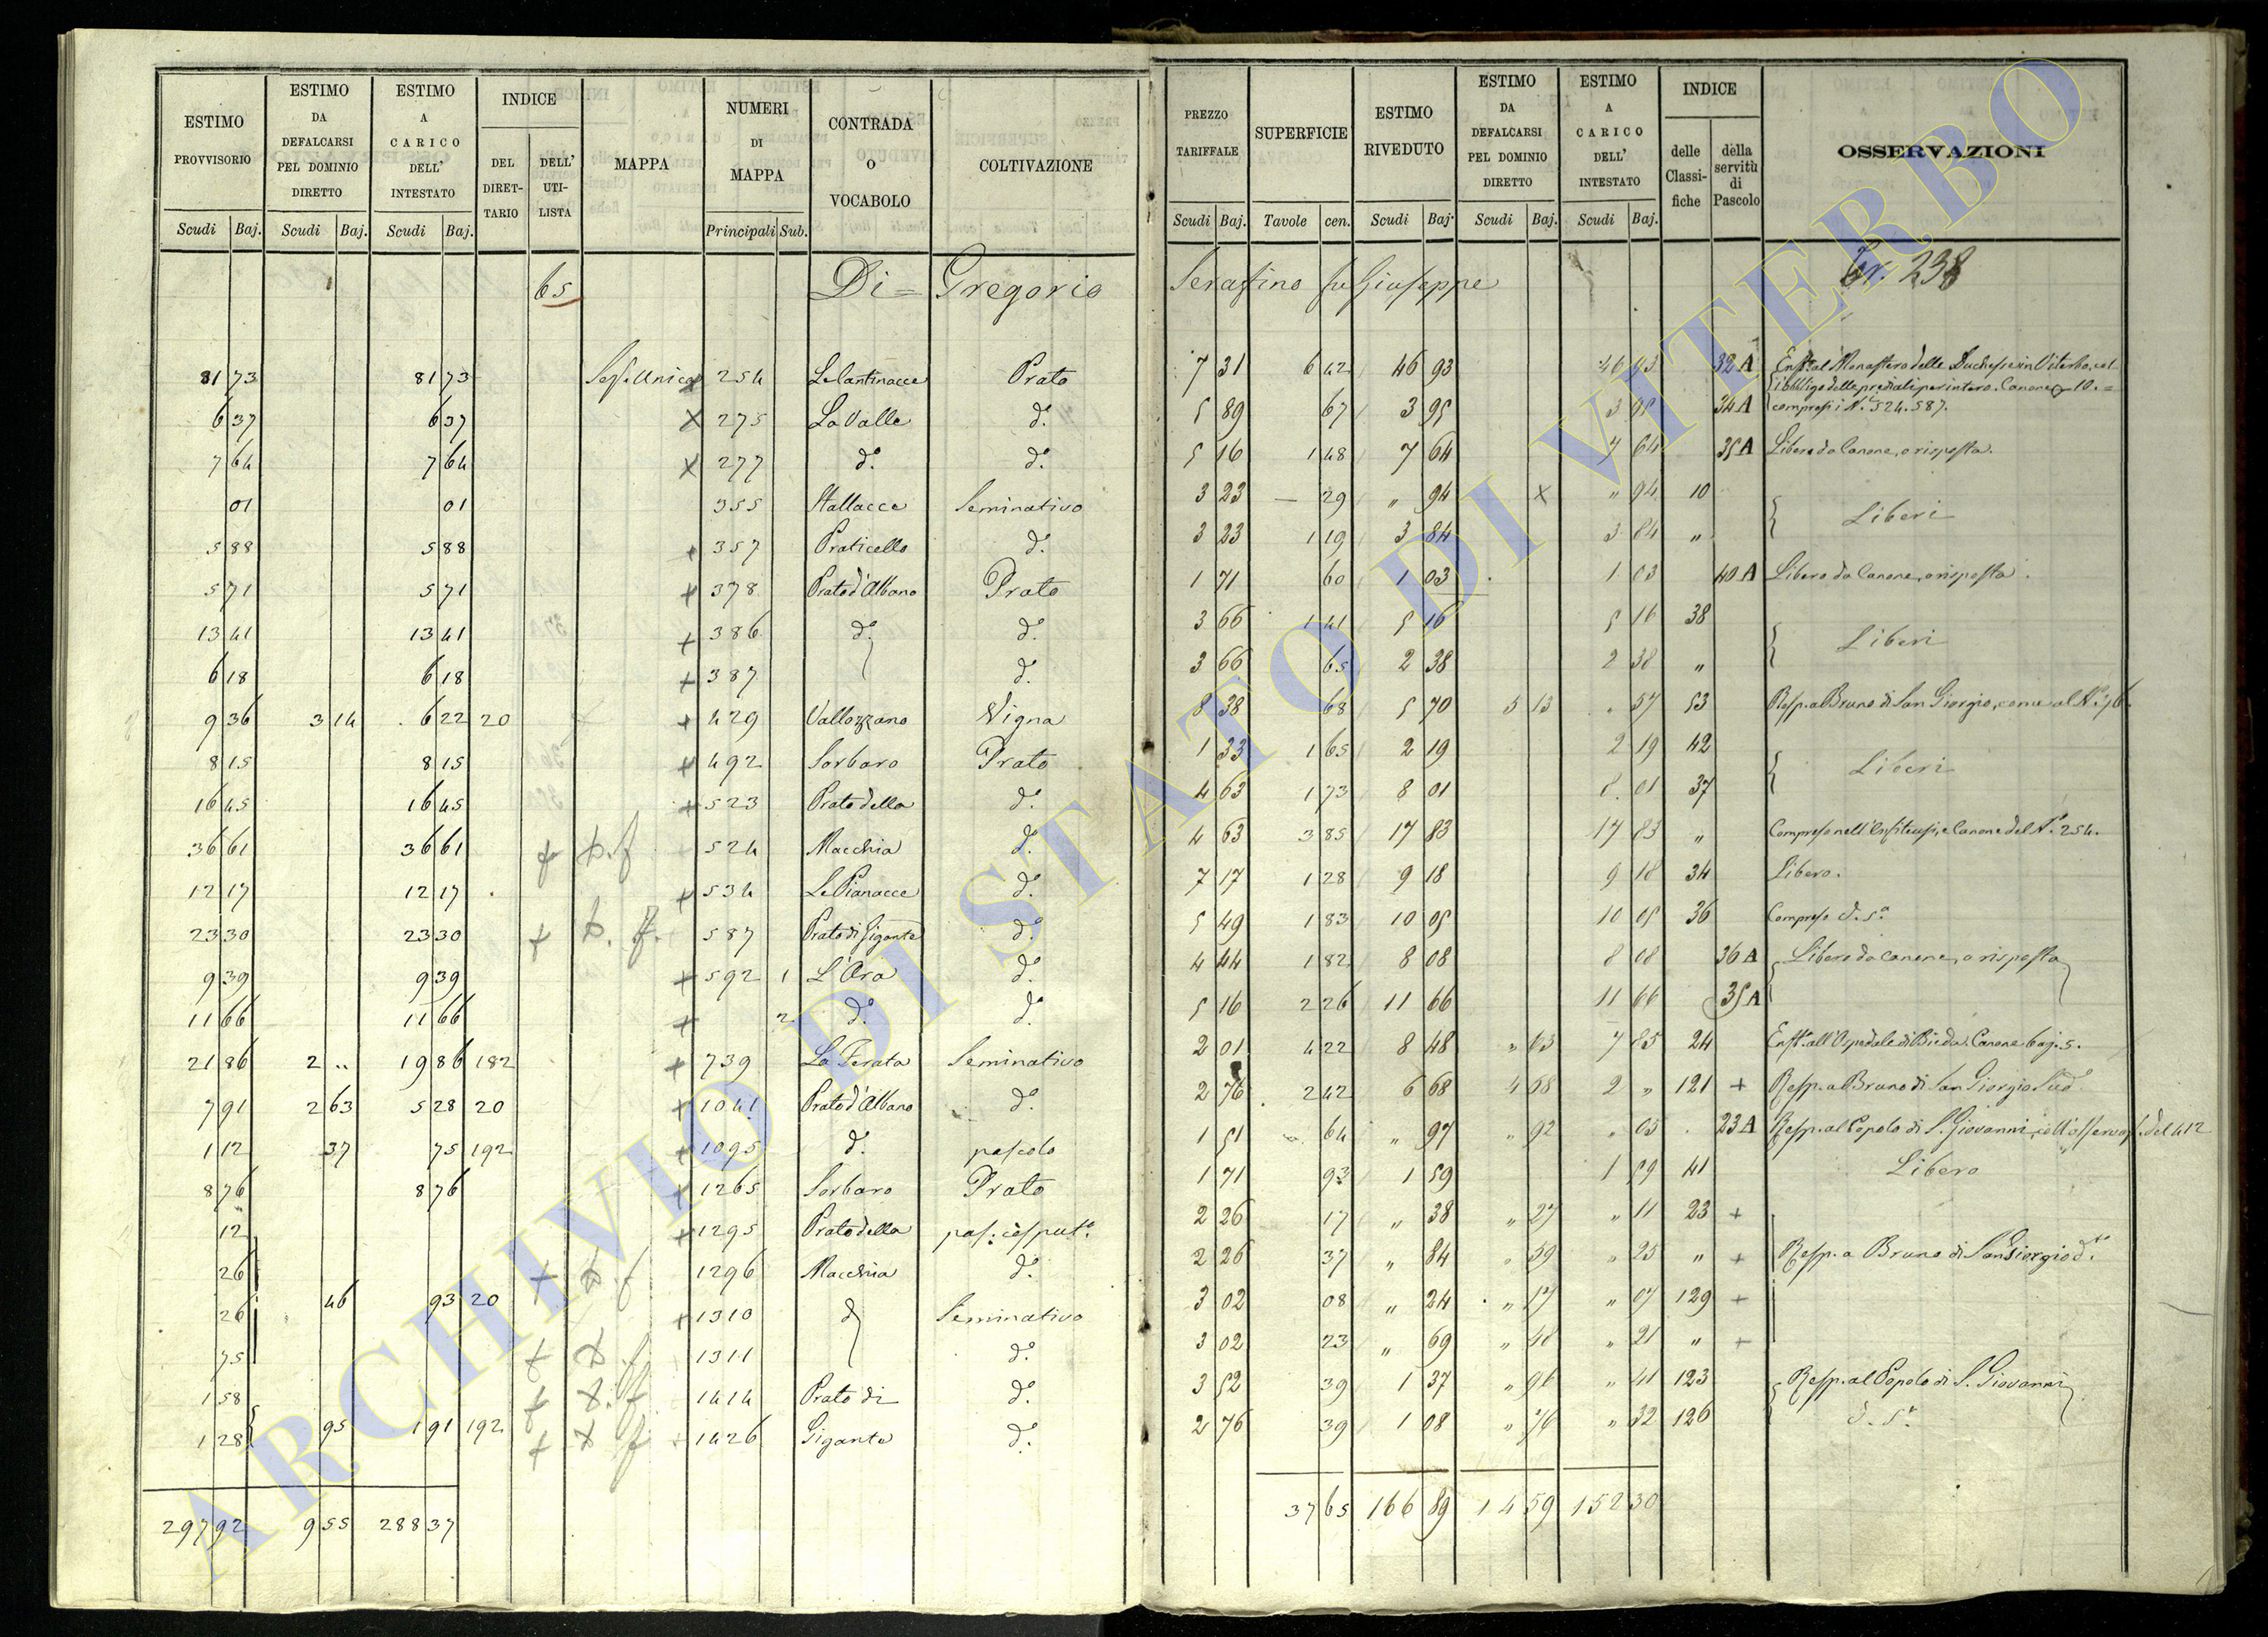 ESTIMO PROVVISORIO | ESTIMO DA DEFALCARSI PEL DOMINIO DIRETTO | ESTIMO A CARICO DELL' INTESTATO | INDICE DEL DIRETTARIO | DELL' UTILISTA | MAPPA | NUMERI DI MAPPA | CONTRADA O VOCABOLO | COLTIVAZIONE
Scudi | Baj. | Scudi | Baj. | Scudi | Baj. | Principali | Sub.
65 Di= Gregorio
81 73 | 81 73 | 254 | Le Cantinacce | Prato
6 37 | 6 37 | X 275 | La Valle | d.°
7 64 | 7 64 | X 277 | d.° | d.°
01 | 01 | 355 | Stallacce | Seminativo
5 88 | 5 88 | + 357 | Praticello | d.°
5 71 | 5 71 | + 378 | Prato d'Albano | Prato
13 41 | 13 41 | + 386 | d.° | d.°
6 18 | 6 18 | + 387 | d.°
9 36 | 3 14 | 6 22 | 20 | + 429 | Vallozzano | Vigna
8 15 | 8 15 | + 492 | Sorbaro | Prato
16 45 | 16 45 | + 523 | Prato della | d.°
36 61 | 36 61 | 524 | Macchia | d.°
12 17 | 12 17 | + 534 | Le Pianacce | d.°
23 30 | 23 30 | + | 587 | Prato di Gigante | d.°
9 39 | 9 39 | + 592 | 1 | L'Ara | d.°
11 66 | 11 66 | + | 2 | d.° | d.°
21 86 | 2 .. | 19 86 | 182 | + 739 | La Ferata | Seminativo
7 91 | 2 63 | 5 28 | 20 | + 1041 | Prato d'Albano | d.°
1 12 | 37 | 75 | 192 | + 1095 | d.° | pascolo
8 76 | 8 76 | + 1265 | Sorbaro | Prato
12 | + 1295 | Prato della | pas: cesput.°
26 | 1296 | Macchia | d.°
26 | 46 | 93 | 20 | + 1310 | d.° | Seminativo
75 | 1311 | d.°
1 58 | 1414 | Prato di | d.°
1 28 | 95 | 1 91 | 192 | 1426 | Gigante | d.°
297 92 | 9 55 | 288 37
PREZZO TARIFFALE | SUPERFICIE | ESTIMO RIVEDUTO | ESTIMO DA DEFALCARSI PEL DOMINIO DIRETTO | ESTIMO A CARICO DELL' INTESTATO | INDICE delle Classifiche | della servitù di Pascolo | OSSERVAZIONI
Scudi | Baj. | Tavole | cen. | Scudi | Baj. | Scudi | Baj. | Scudi | Baj.
Serafino fu Giuseppe
7 31 | 6 42 | 46 93 | 46 93 | 32 A | Enft. al Monastero delle Duchesse in Viterbo, col
l'obbligo delle prediali per intero. Canone 10. =
5 89 | 67 | 3 95 | 3 95 | 34 A | compresi i N.i 524. 587.
5 16 | 1 48 | 7 64 | 7 64 | 35 A | Libero da Canone, o risposta.
3 23 | — 29 | " 94 | X | " 94 | 10 | Liberi
3 23 | 1 19 | 3 84 | 3 84 | "
1 71 | 60 | 1 03 | 1 03 | 40 A | Libero da Canone, o risposta.
3 66 | 1 41 | 5 16 | 5 16 | 38 | Liberi
3 66 | 65 | 2 38 | 2 38 | "
8 38 | 68 | 5 70 | 5 13 | " 57 | 53 | Risp. al Bruno di San Giorgio, come al N.° 76.
1 33 | 1 65 | 2 19 | 2 19 | 42 | Liberi
4 63 | 1 73 | 8 01 | 8 01 | 37
4 63 | 3 85 | 17 83 | 17 83 | " | Compreso nell'Enfiteusi, e Canone del N.° 254.
7 17 | 1 28 | 9 18 | 9 18 | 34 | Libero.
5 49 | 1 83 | 10 05 | 10 05 | 36 | Compreso d. s.a
4 44 | 1 82 | 8 08 | 8 08 | 36 A | Libero da canone, o risposta
5 16 | 2 26 | 11 66 | 11 66 | 35 A
2 01 | 4 22 | 8 48 | " 63 | 7 85 | 24 | Enft. all'Ospedale di Bieda. Canone baj. 5.
2 76 | 2 42 | 6 68 | 4 68 | 2 " | 121 | + | Risp. a Bruno di San Giorgio
1 51 | 64 | " 97 | " 92 | " 05 | 23 A | Risp. al Popolo di S. Giovanni, coll'osservaz. del 412
1 71 | 93 | 1 59 | 1 59 | 41 | Libero
2 26 | 17 | " 38 | " 27 | " 11 | 23 | +
2 26 | 37 | " 84 | " 59 | " 25 | " | + | Risp. a Bruno di San Giorgio d.to
3 02 | 08 | " 24 | " 17 | " 07 | 129 | +
3 02 | 23 | " 69 | " 48 | " 21 | " | +
3 52 | 39 | 1 37 | " 96 | " 41 | 123 | Risp. al Popolo di S. Giovanni
2 76 | 39 | 1 08 | " 76 | " 32 | 126 | d. s.a
37 65 | 166 89 | 14 59 | 152 30
ARCHIVIO DI STATO DI VITERBO